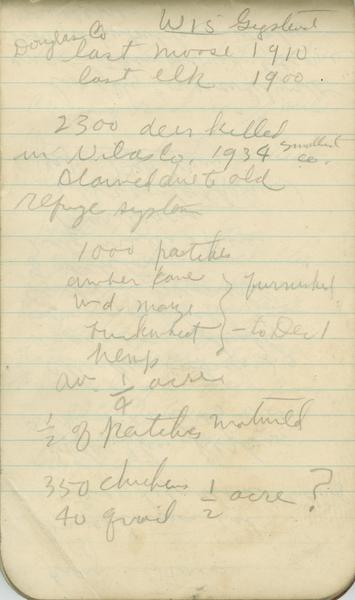 WIS
Douglas Co
last moose 1910
last elk 1900
2300 deer killed
in Vilas Co. 1934 smallest co.
Starved due to old
refuge system
1000 patches
amber kane
furnished
buckwheat - to Dec 1
hemp
av. 1/4 acre
1/2 of patches matured
350 chickens 1/2 acre ?
40 quail